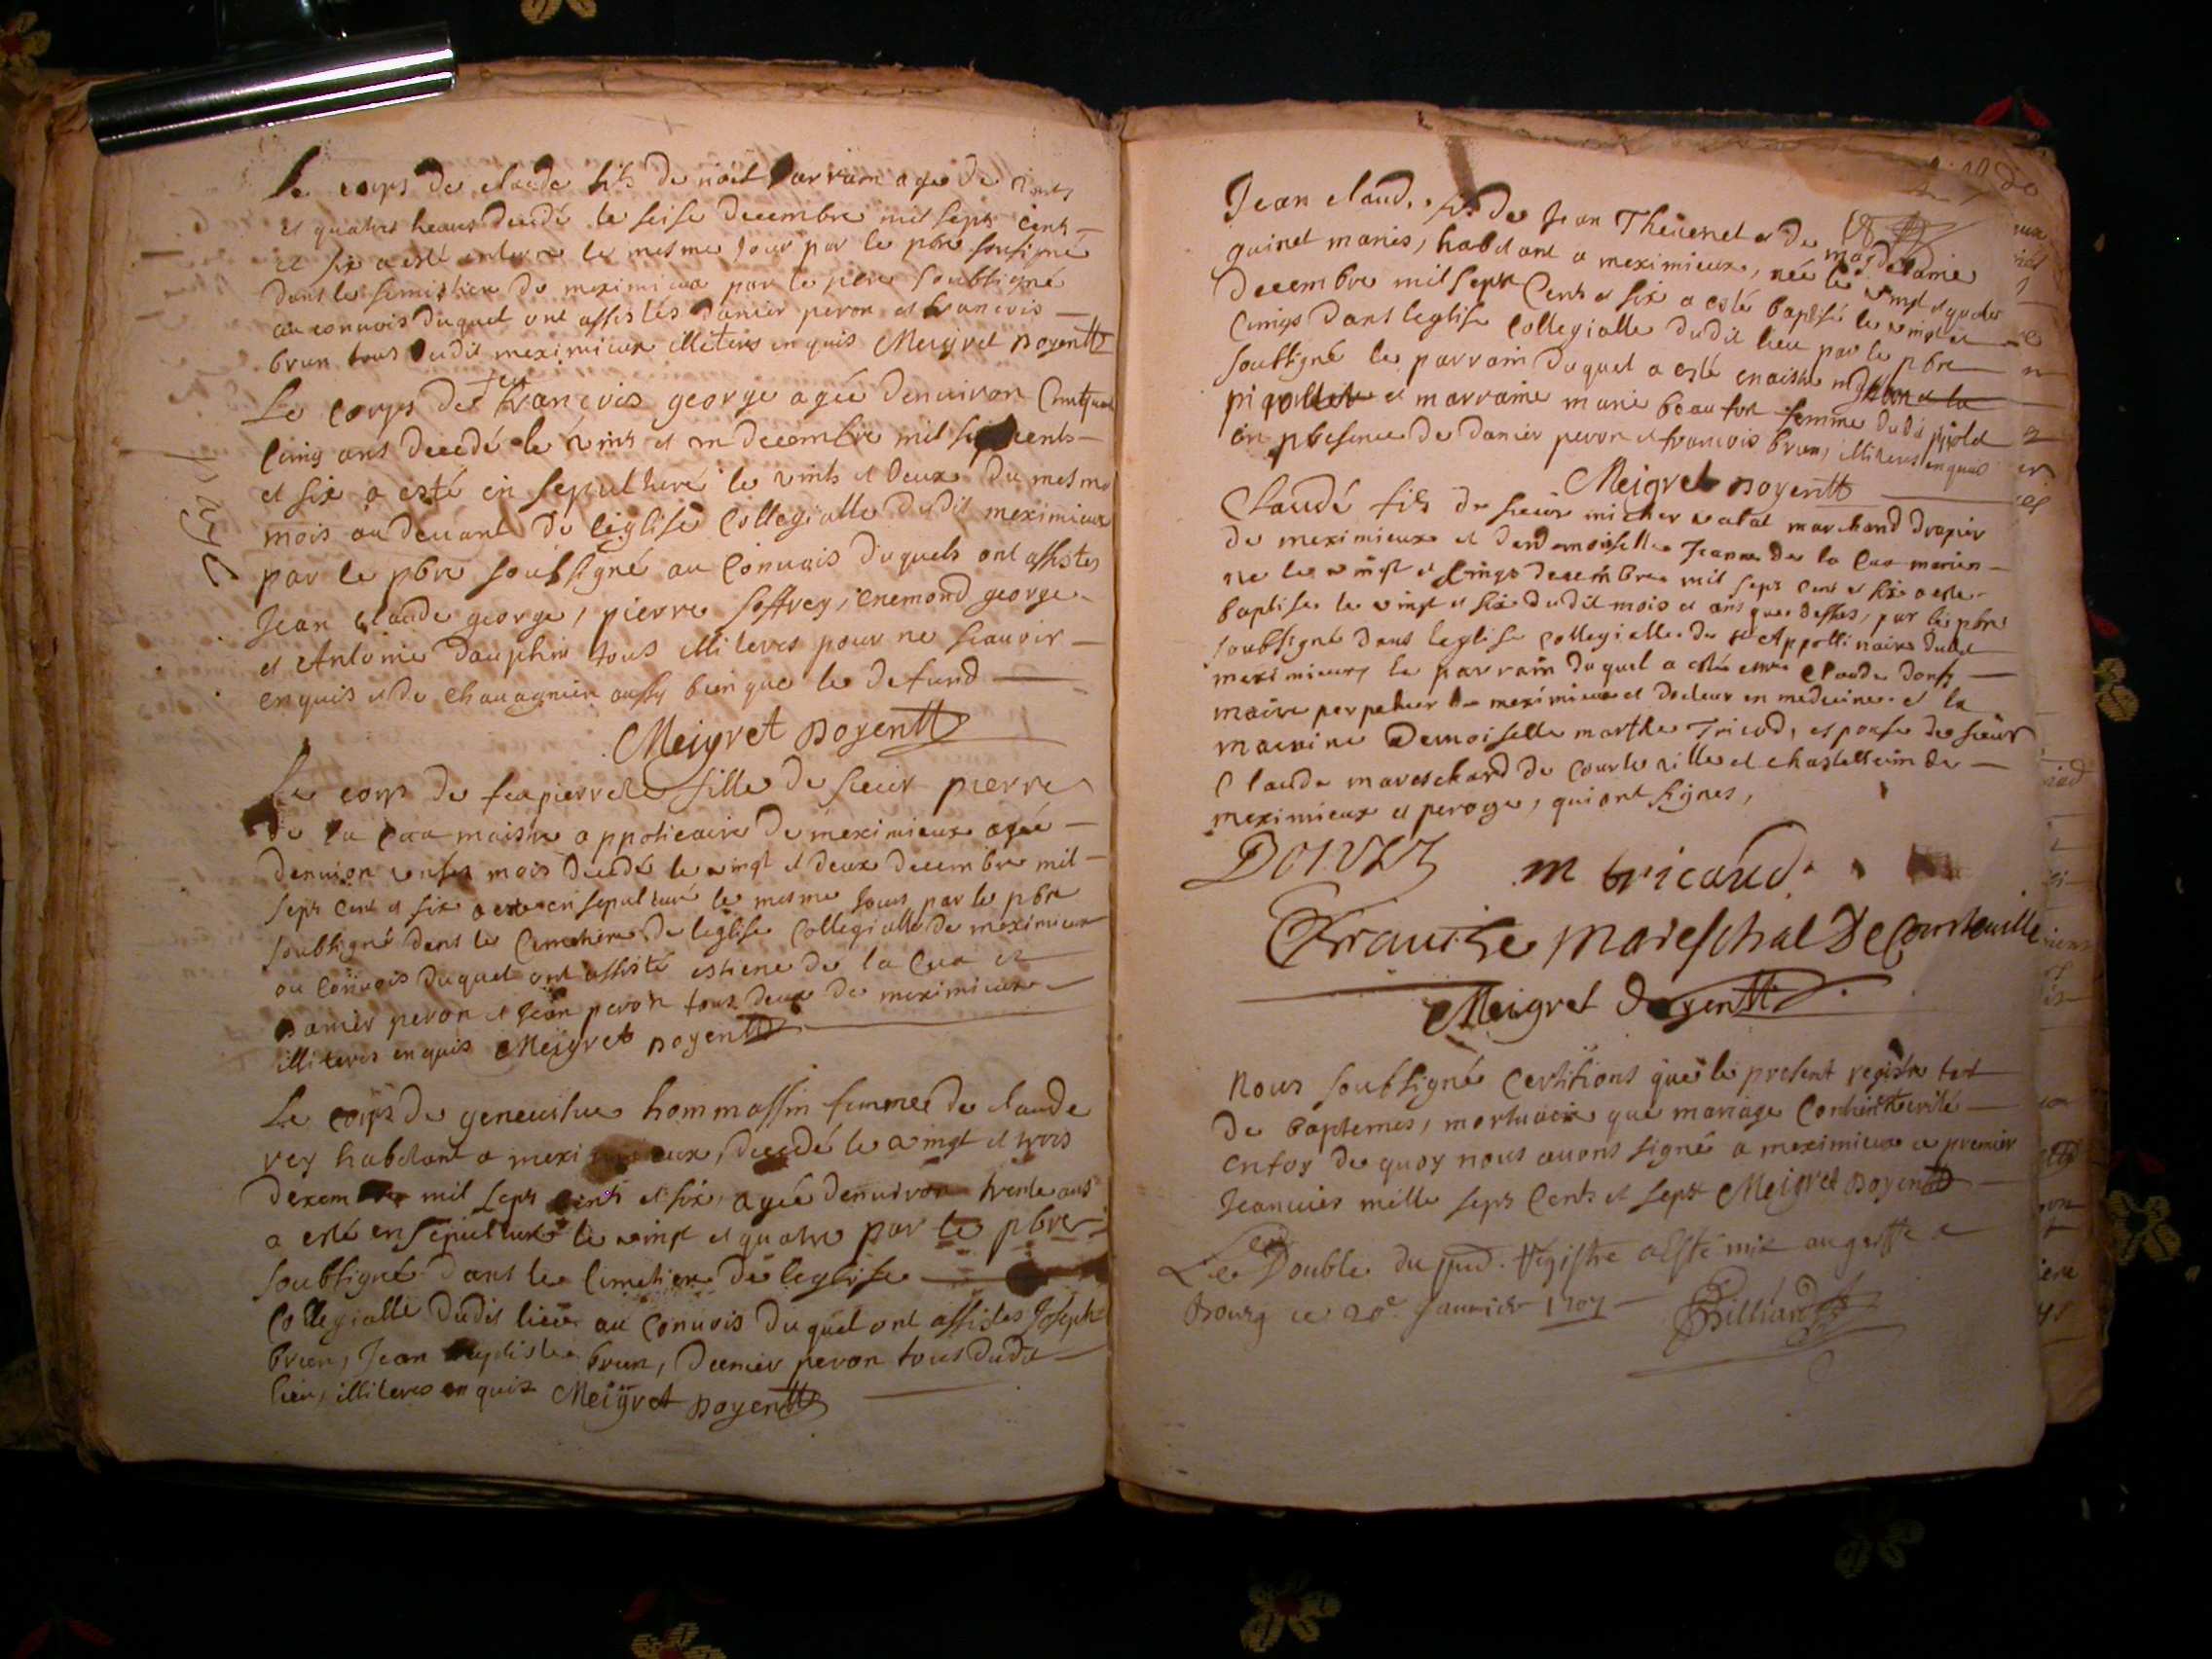 Le corps de claude fils de noel Varriam age de vints
et quatres heaures decedé le seise decembre mil sept cents
et six a esté enterre le mesme jour par le pbre sousigné
dans le simistiere de meximieux par le pbre soubsigné
au convois duquel ont assistés damier peron et francois
brun tous dudit meximieux illiteres enquis Meigret Doyen
Le corps de feu francois george agée denuiron Cinquante
cinq ans decedé le vints et un decembre mil sept cents
et six a esté en sepulturé le vints et deux du mesme
mois au devant de leglise Collegialle dudit meximieux
par le pbre soubsigné au Convois duquels ont assistes
Jean claude george, pierre soffrey, enemond george
et Antoine dauphin tous illiteres pour ne scauoir
enquis et de chavagnieu aussy bien que le defund
Meigret Doyen
Le corps de feu pierrette fille de sieur pierre
de la Cua maistre appoticaire de meximieux agée
denuiron mois decedé le vingt et deux decembre mil
sept cent et six a esté en sepulturé le mesme jours par le pbre
soubsigné dans le Cimetiere de leglise Collegialle de meximieux
au Convois duquel ont assisté estiene de la Cua et
Damier peron et Jean peron tous deux de meximieux
illiteres enquis Meigret Doyen
Le corps de geneuitue hommassin femme de claude
rey habitant a meximieux, decedé le vingt et trois
dexembre mil sept cents et six, agée denuiron trente ans
a esté en sepulture le vingt et quatre par le pbre
soubsigné dans le Cimetiere de leglise
Collegialle dudit lieu au Convois duquel ont assistes Joseph
brun, Jean baptiste brun, damier peron tous dudit
lieu, illiteres enquis Meigret Doyen
page
Jean claude, fils de Jean Theuenet et de
guinet maries, habitant a meximieux, née le vingt et quatre
decembre mil sept Cents et six a esté baptisé le vingt et
Cinqs dans leglise Collegialle dudit lieu par le pbre
soubsigné le parrain duquel a esté
pigollet et marraine marie beaufort femme dudit pigollet
en presence de damier peron et francois brun, illiteres enquis
Meigret Doyen
Claude fils de sieur micher marchand drapier
de meximieux et dardamoiselle Jeanne de la Cua maries
ne le vingt et Cinqs decembre mil sept cent et six a esté
baptise le vingt et six dudit mois et ans que dessus, par le pbre
soubsigné dans leglise collegialle de st Appollinaire dudit
meximieux le parrain duquel a esté claude
maire perpetuer de meximieux et docteur en medecine et la
maraine Demoiselle marthe Tricod, espouse de sieur
Claude mareschard de Courteuille et chastellein de
meximieux et peroge, qui ont signes,
m tricaud
Francise Mareschal De Courteuille
Meigret doyen
Nous soubsigné Certifions que le present registre tant
de baptemes, mortuaire que mariage Contient verité
enfoy de quoy nous auons signé a meximieux ce premier
Jeanuier mille sept Cents et sept Meigret Doyen
Le Double du pnt. Registre a Esté mis au greffe a
Bourg ce 20e Januier 1707
Billiard